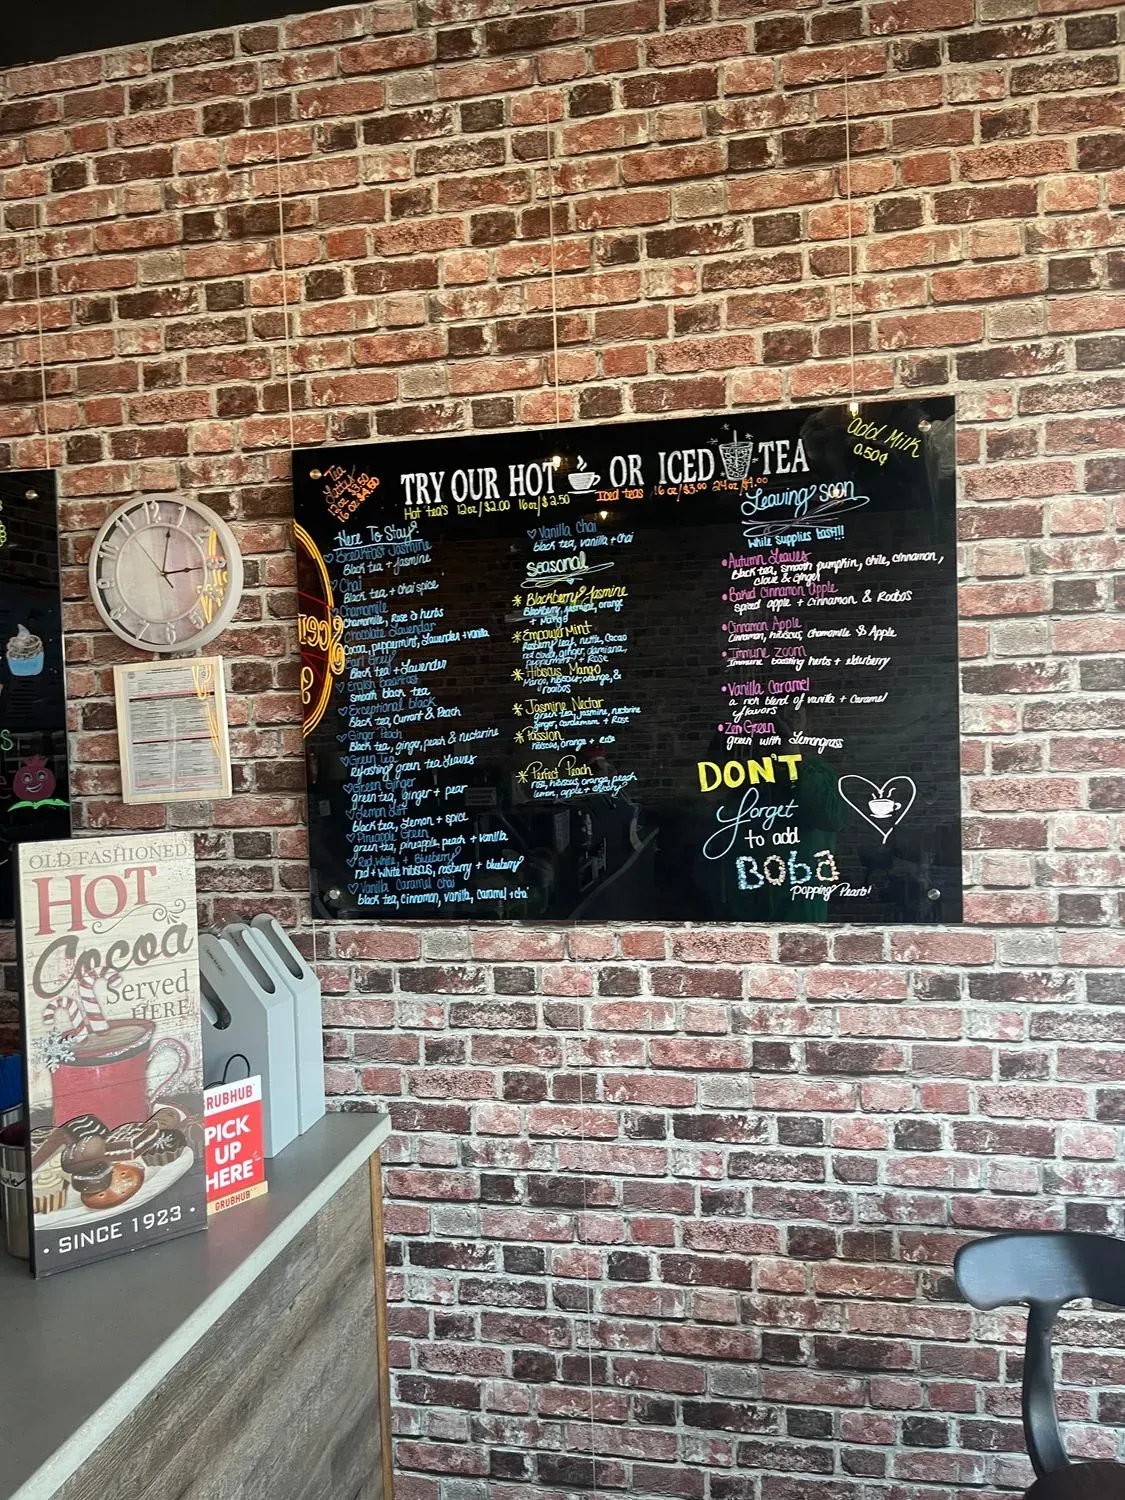 TRY OUR HOT OR ICED TEA
Hot tea's 12oz/$2.00 16oz/$2.50
Iced teas 16 oz/$3.00 24 oz/$4.00
Tea
12oz $3.50
16oz $4.50
add Milk
0.50¢
Here To Stay!
Breakfast Jasmine
Black tea + jasmine
Chai
Black tea + chai spice
Chamomile
Chamomile, Rose & herbs
Chocolate Lavender
Cocoa, peppermint, Lavender + vanilla
Earl Grey
Black tea + Lavender
English Breakfast
smooth black tea
Exceptional black
Black tea, Currant & Peach
Ginger Peach
Black tea, ginger, peach & nectarine
Green Tea
Refreshing green tea Leaves
Green Ginger
green tea, Ginger + pear
Lemon
black tea, Lemon + spice
Pineapple Green
green tea, pineapple, peach + vanilla
Red, white, + Blueberry
red + white hibiscus, rasberry + blueberry
Vanilla Caramel Chai
black tea, cinnamon, vanilla, caramel + chai
Vanilla Chai
black tea, vanilla + chai
Seasonal
* Blackberry Jasmine
Blackberry, jasmine, orange
+ Mango
* EmpowerMint
Rasberry leaf, nettle, Cacao
red clover, ginger, damiana,
peppermint + Rose
* Hibiscus Mango
Mango, hibiscus, orange, &
rooibos
* Jasmine Nectar
green tea, jasmine, nectarine
ginger, cardamom + Rose
* Passion
hibiscus, orange + rose
* Perfect Peach
rose, hibiscus, orange, peach
lemon, apple + cherry
Leaving soon
While supplies last!!!
• Autumn Leaves
Black tea, smooth pumpkin, chile, cinnamon,
clove & ginger
• Baked Cinnamon Apple
spiced apple + cinnamon & Rooibos
• Cinnamon Apple
Cinnamon, hibiscus, chamomile & Apple
• Immune zoom
Immune boosting herbs + elderberry
• Vanilla Caramel
a rich blend of vanilla + Caramel
flavors
• Zen Green
green with Lemongrass
DON'T
forget
to add
Boba
popping Pearls!
OLD FASHIONED
HOT
Cocoa
Served
HERE
• SINCE 1923 •
GRUBHUB
PICK
UP
HERE
GRUBHUB